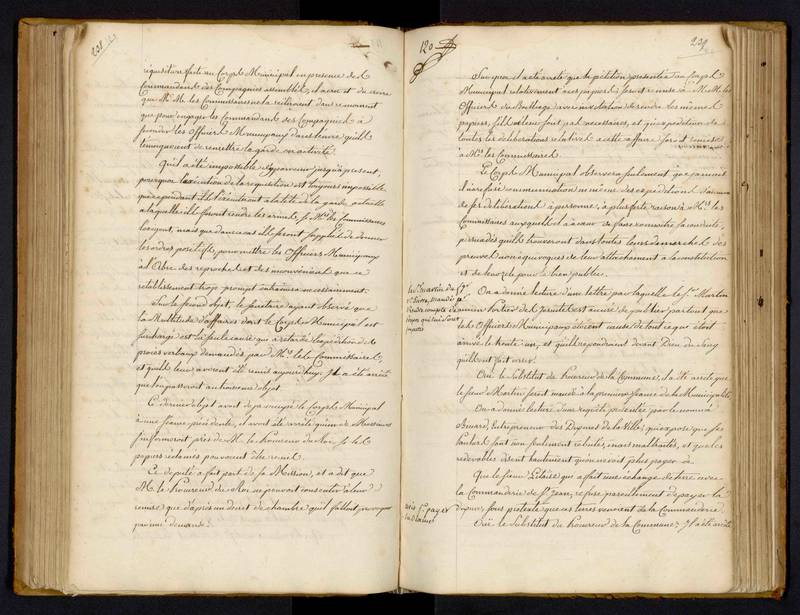 238
réquisiture faite au Corps Municipal en presence des
Commandants des Compagnies assemblés, il a cru et du croire
que Mrs. Mrs. les Commissaires ne la réitéroient dans ce moment
que pour engager les Commandants des Compagnies à
les Officiers Municipaux dans l'envie qu'ils
témoignoient de remettre la garde en activité.
Qu'il a été impossible d'y parvenir jusqu'à présent,
pourquoi l'exécution de la requisition est toujours impossible
que cependant ils l'exécuteront à la tête de la garde actuelle
à laquelle ils feront rendre les armes, si Mrs. les Commissaires
l'exigent, mais que dans ce cas ils seront suppliés de donner
les ordres positifs, pour mettre les Officiers Municipaux
à l'Abri des reproches et des inconvéniens que ce
rétablissement trop prompt entraînera nécessairement.
Sur le second objet, le secrétaire ayant observé que
la Multitude d'affaires dont le Corps Municipal est
surchargé est la seule cause qui a retardé l'expédition des
procès verbaux demandés par Mrs. les Commissaires,
et qu'ils leur avoient été remis aujourd'huy. Il a été arrêté
que l'on passeroit au troisieme objet
Ce dernier objet avoit deja occupé le Corps Municipal
à une séance précédente, il avoit été arrêté qu'un de Messieurs
s'informeroit près de M. le Procureur du Roi si les
papiers réclamés pouvoient être remis.
Ce député a fait part de sa Mission, et a dit que
M. le Procureur du Roi ne pouvoit consentir à leur
remise que d'après un décret de chambre qu'il falloit provoquer
par une demande.
120
239
Surquoi il a été arrêté que la pétition présentée au Corps
Municipal relativement à ces papiers seroit remise à M. Mrs. les
Officiers du Bailliage avec invitation de rendre les mêmes
papiers, s'ils ne leur sont pas nécessaires, et qu'expédition de
toutes les délibérations relatives à cette affaire seroit remise
à Mrs. les Commissaires.
Le Corps Municipal observera seulement que jamais
il n'ai fait communication ni même des expéditions d'aucune
de ses délibérations à personne, à plus forte raison à Mrs. les
Commissaires auxquels il a à coeur de faire connoître sa conduite,
persuadés qu'ils trouveront dans toutes leurs démarches des
preuves non équivoques de leur attachement à la constitution
et de leur zèle pour le bien public.
le Sr. martin
mandé pr.
rendre compte de
propos qui lui sont
imputés
On a donné lecture d'une lettre par laquelle le Sr. Martin
ancien Portier des est accusé de publier partout que
les Officiers Municipaux étoient cause de tout ce qui étoit
arrivé le trente un, et qu'ils répondroient devant Dieu du sang
qu'ils ont fait verser.
Oui le Substitut du Procureur de la Commune, il a été arrêté que
le sieur Martin seroit mandé à la premiere séance de la Municipalité.
On a donné lecture d'une requête présentée par le nommé
Entrepreneur des de la Ville, qui expose que ses
sont non seulement rebutés, mais maltraités, et que les
redevables disent hautement qu'on ne doit plus payer
Que le sieur qui a fait une échange de terre avec
la Commanderie de St. Jean, refuse pareillement de payer la
sous prétexte que ces terres venoient de la Commanderie.
payer
Oui le Substitut du Procureur de la Commune, Il a été arrêté